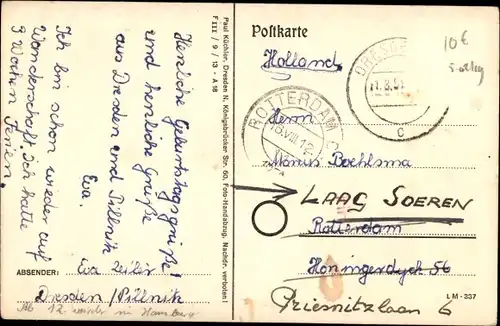 Ich bin schon wieder auf
Wanderschaft. Ich hatte
3 Wochen Ferien.
Herzliche Geburtstagsgrüße!
und herzliche Grüße
aus Dresden und Pillnitz
Eva.
ABSENDER: Eva
Dresden/Pillnitz
Ab 12. wieder in Hamburg
Paul Küchler, Dresden N, Königsbrücker Str. 60, Foto-Handabzug. Nachdr. verboten!
F III / 9 / 13 - A 16
Postkarte
Holland
DRESDEN
c
10€
ROTTERDAM
18.VIII.12
Herrn
Boehlsma
LAAG SOEREN
Rotterdam
Honingerdyck 56
Priesnitzlaan 6
LM-337